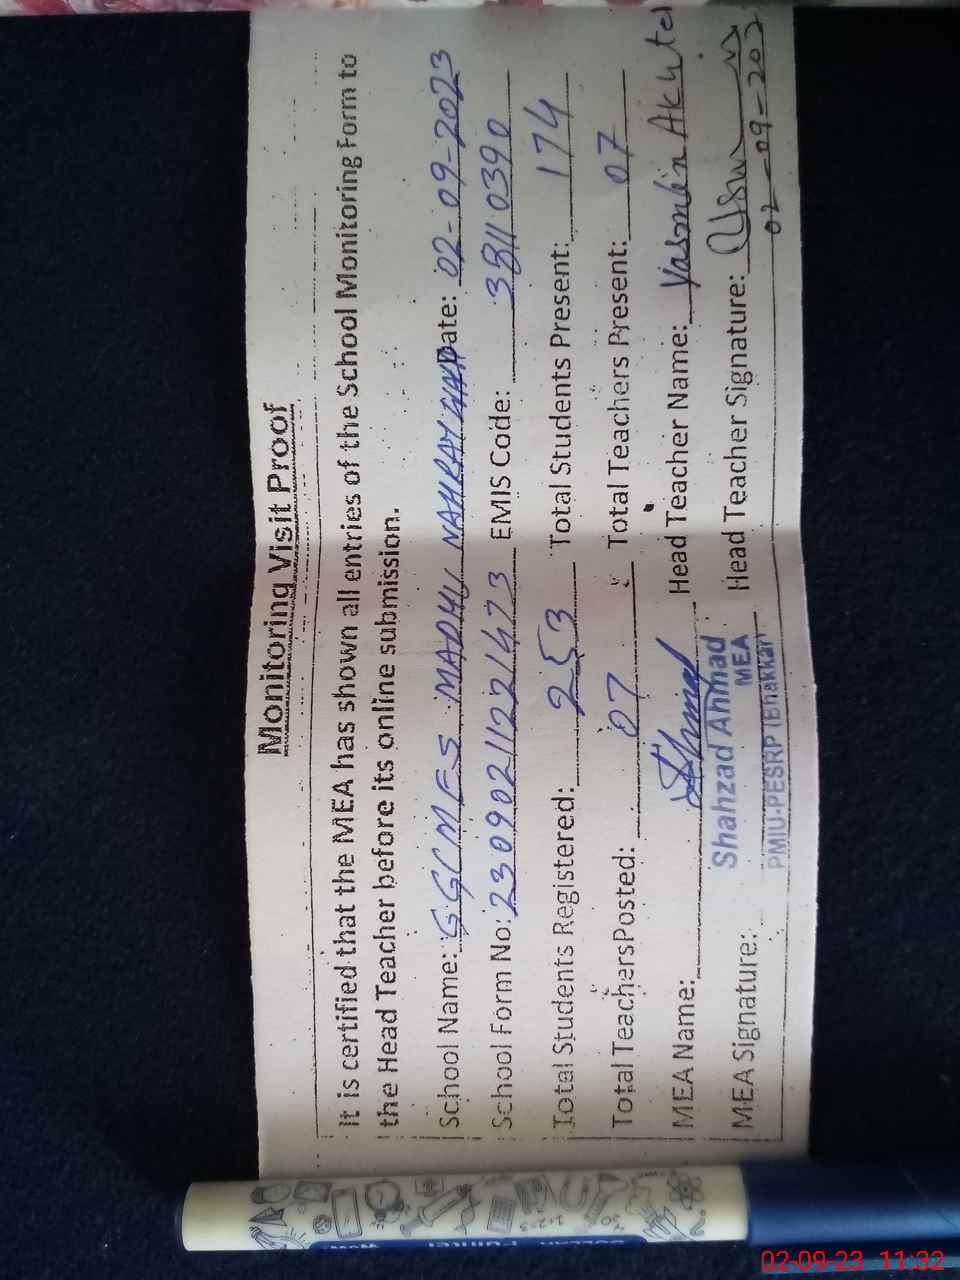 Monitoring Visit Proof
It is certified that the MEA has shown all entries of the School Monitoring Form to
the Head Teacher before its online submission.
School Name: GGCMES MADHU NAHRAY WAN Date: 02-09-2023
School Form No: 23090211221473 EMIS Code: 38110390
Total Students Registered: 253 Total Students Present: 174
Total Teachers Posted: 07 Total Teachers Present: 07
MEA Name: Head Teacher Name: Yasmin Akhter
Shahzad Ahmad
MEA Signature: MEA Head Teacher Signature:
PMIU-PESRP (Bhakkar) 02-09-202
1+2=3
Pointer
02-09-23 11:32